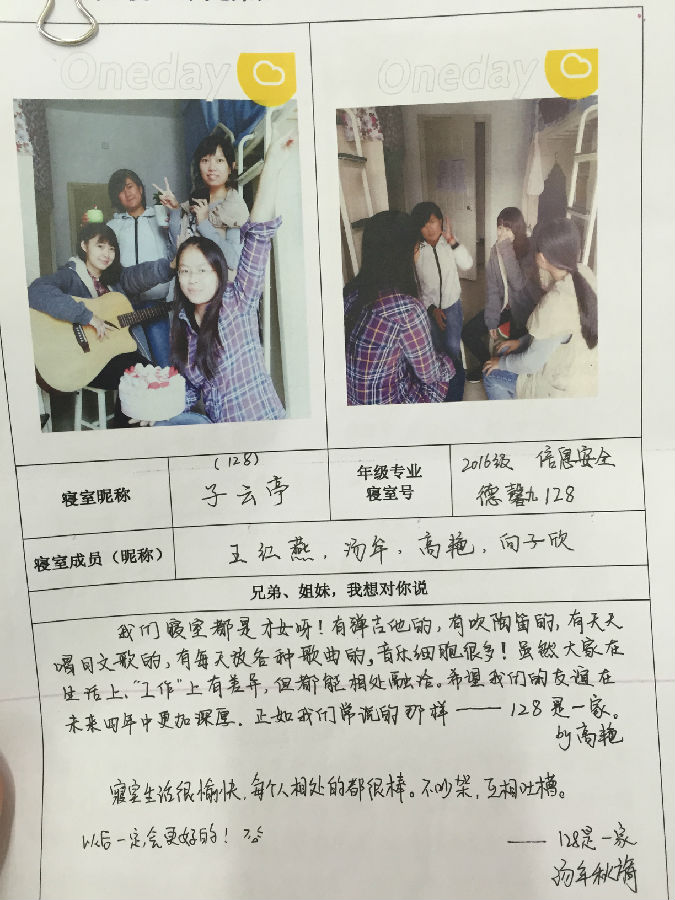 Oneday
Oneday
寝室昵称
(128)
子云亭
年级专业
寝室号
2016级 信息安全
德馨九128
寝室成员（昵称）
王红燕，汤年，高艳，向子欣
兄弟、姐妹，我想对你说
我们寝室都是才女呀！有弹吉他的，有吹陶笛的，有天天
唱日文歌的，有每天放各种歌曲的，音乐细胞很多！虽然大家在
生活上，"工作"上有差异，但都能相处融洽。希望我们的友谊在
未来四年中更加深厚。正如我们常说的那样——128是一家。
by高艳
寝室生活很愉快，每个人相处的都很棒。不吵架，互相吐槽。
以后一定会更好的！
——128是一家
汤年秋